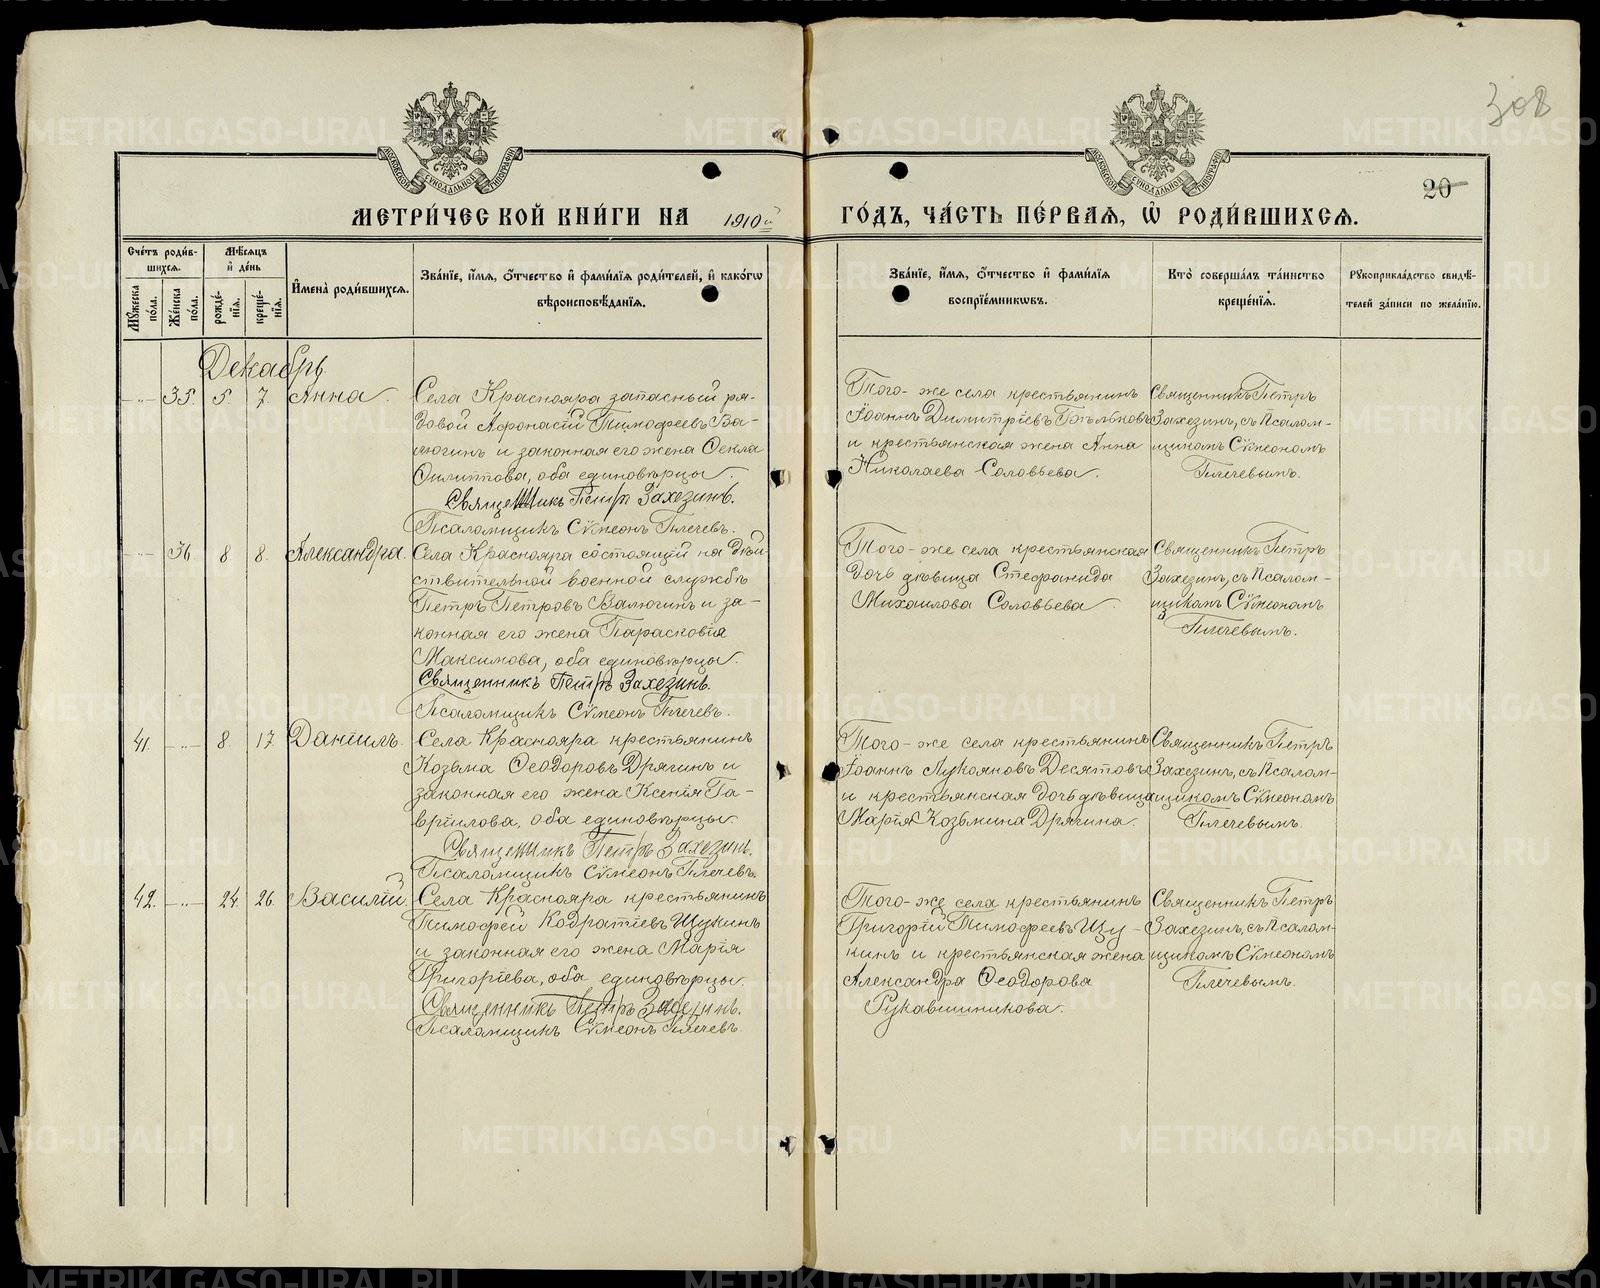 308
МОСКОВСКОЙ СѴНОДАЛЬНОЙ ТИПОГРАФІИ
МОСКОВСКОЙ СѴНОДАЛЬНОЙ ТИПОГРАФІИ
20
МЕТРИ́ЧЕСКОЙ КНИ́ГИ НА 1910й ГО́ДЪ, ЧА́СТЬ ПЕ́РВАѦ, Ѡ҆ РОДИ́ВШИХСѦ.
Сче́тъ роди́в-
шихсѧ.
Мѣ́сѧцъ
и҆ де́нь
Мꙋ́жеска по́ла.
Же́нска по́ла.
рожде́нїѧ.
креще́нїѧ.
И҆мена̀ роди́вшихсѧ.
Зва́нїе, и҆́мѧ, ѻ҆́тчество и҆ фами́лїѧ роди́телей, и҆ како́гѡ
вѣроисповѣ́данїѧ.
Зва́нїе, и҆́мѧ, ѻ҆́тчество и҆ фами́лїѧ
воспрїе́мникѡвъ.
Кто̀ соверша́лъ та́инство
креще́нїѧ.
Рꙋкоприкла́дство свидѣ́-
телей за́писи по жела́нїю.
Декабрь
-"- 35. 5. 7. Анна.
Села Краснояра запасный ря-
довой Афонасій Тимофеевъ Ва-
люгинъ и законная его жена Ѳекла
Филиппова, оба единовѣрцы.
Священникъ Петръ Захезинъ.
Псаломщикъ Сѵмеонъ Плечевъ.
Того-же села крестьянинъ
Іоаннъ Димитріевъ Бѣльковъ
и крестьянская жена Анна
Николаева Соловьева.
Священникъ Петръ
Захезинъ, съ Псалом-
щикомъ Сѵмеономъ
Плечевымъ.
-"- 36. 8 8. Александра.
Села Краснояра состоящій на дѣй
ствительной военной службѣ
Петръ Петровъ Валюгинъ и за-
конная его жена Парасковія
Максимова, оба единовѣрцы.
Священникъ Петръ Захезинъ.
Псаломщикъ Сѵмеонъ Плечевъ.
Того-же села крестьянская
дочь дѣвица Стефанида
Михаилова Соловьева.
Священникъ Петръ
Захезинъ, съ Псалом-
щикомъ Сѵмеономъ
Плечевымъ.
41. -"- 8. 17. Даніилъ.
Села Краснояра крестьянинъ
Козьма Ѳеодоровъ Дрягинъ и
законная его жена Ксенія Га-
вріилова, оба единовѣрцы.
Священникъ Петръ Захезинъ.
Псаломщикъ Сѵмеонъ Плечевъ.
Того-же села крестьянинъ
Іоаннъ Лукояновъ Десятовъ
и крестьянская дочь дѣвица
Марія Козьмина Дрягина.
Священникъ Петръ
Захезинъ, съ Псалом-
щикомъ Сѵмеономъ
Плечевымъ.
42. -"- 24. 26. Василій.
Села Краснояра крестьянинъ
Тимофей Кодратіевъ Щукинъ
и законная его жена Марія
Григоріева, оба единовѣрцы.
Священникъ Петръ Захезинъ.
Псаломщикъ Сѵмеонъ Плечевъ.
Того-же села крестьянинъ
Григорій Тимофеевъ Щу-
кинъ и крестьянская жена
Александра Ѳеодорова
Рукавишникова.
Священникъ Петръ
Захезинъ, съ Псалом-
щикомъ Сѵмеономъ
Плечевымъ.
METRIKI.GASO-URAL.RU